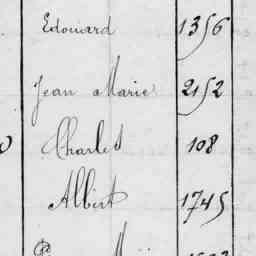 Edouard 1356
Jean Marie 2152
Charles 108
Albert 1745